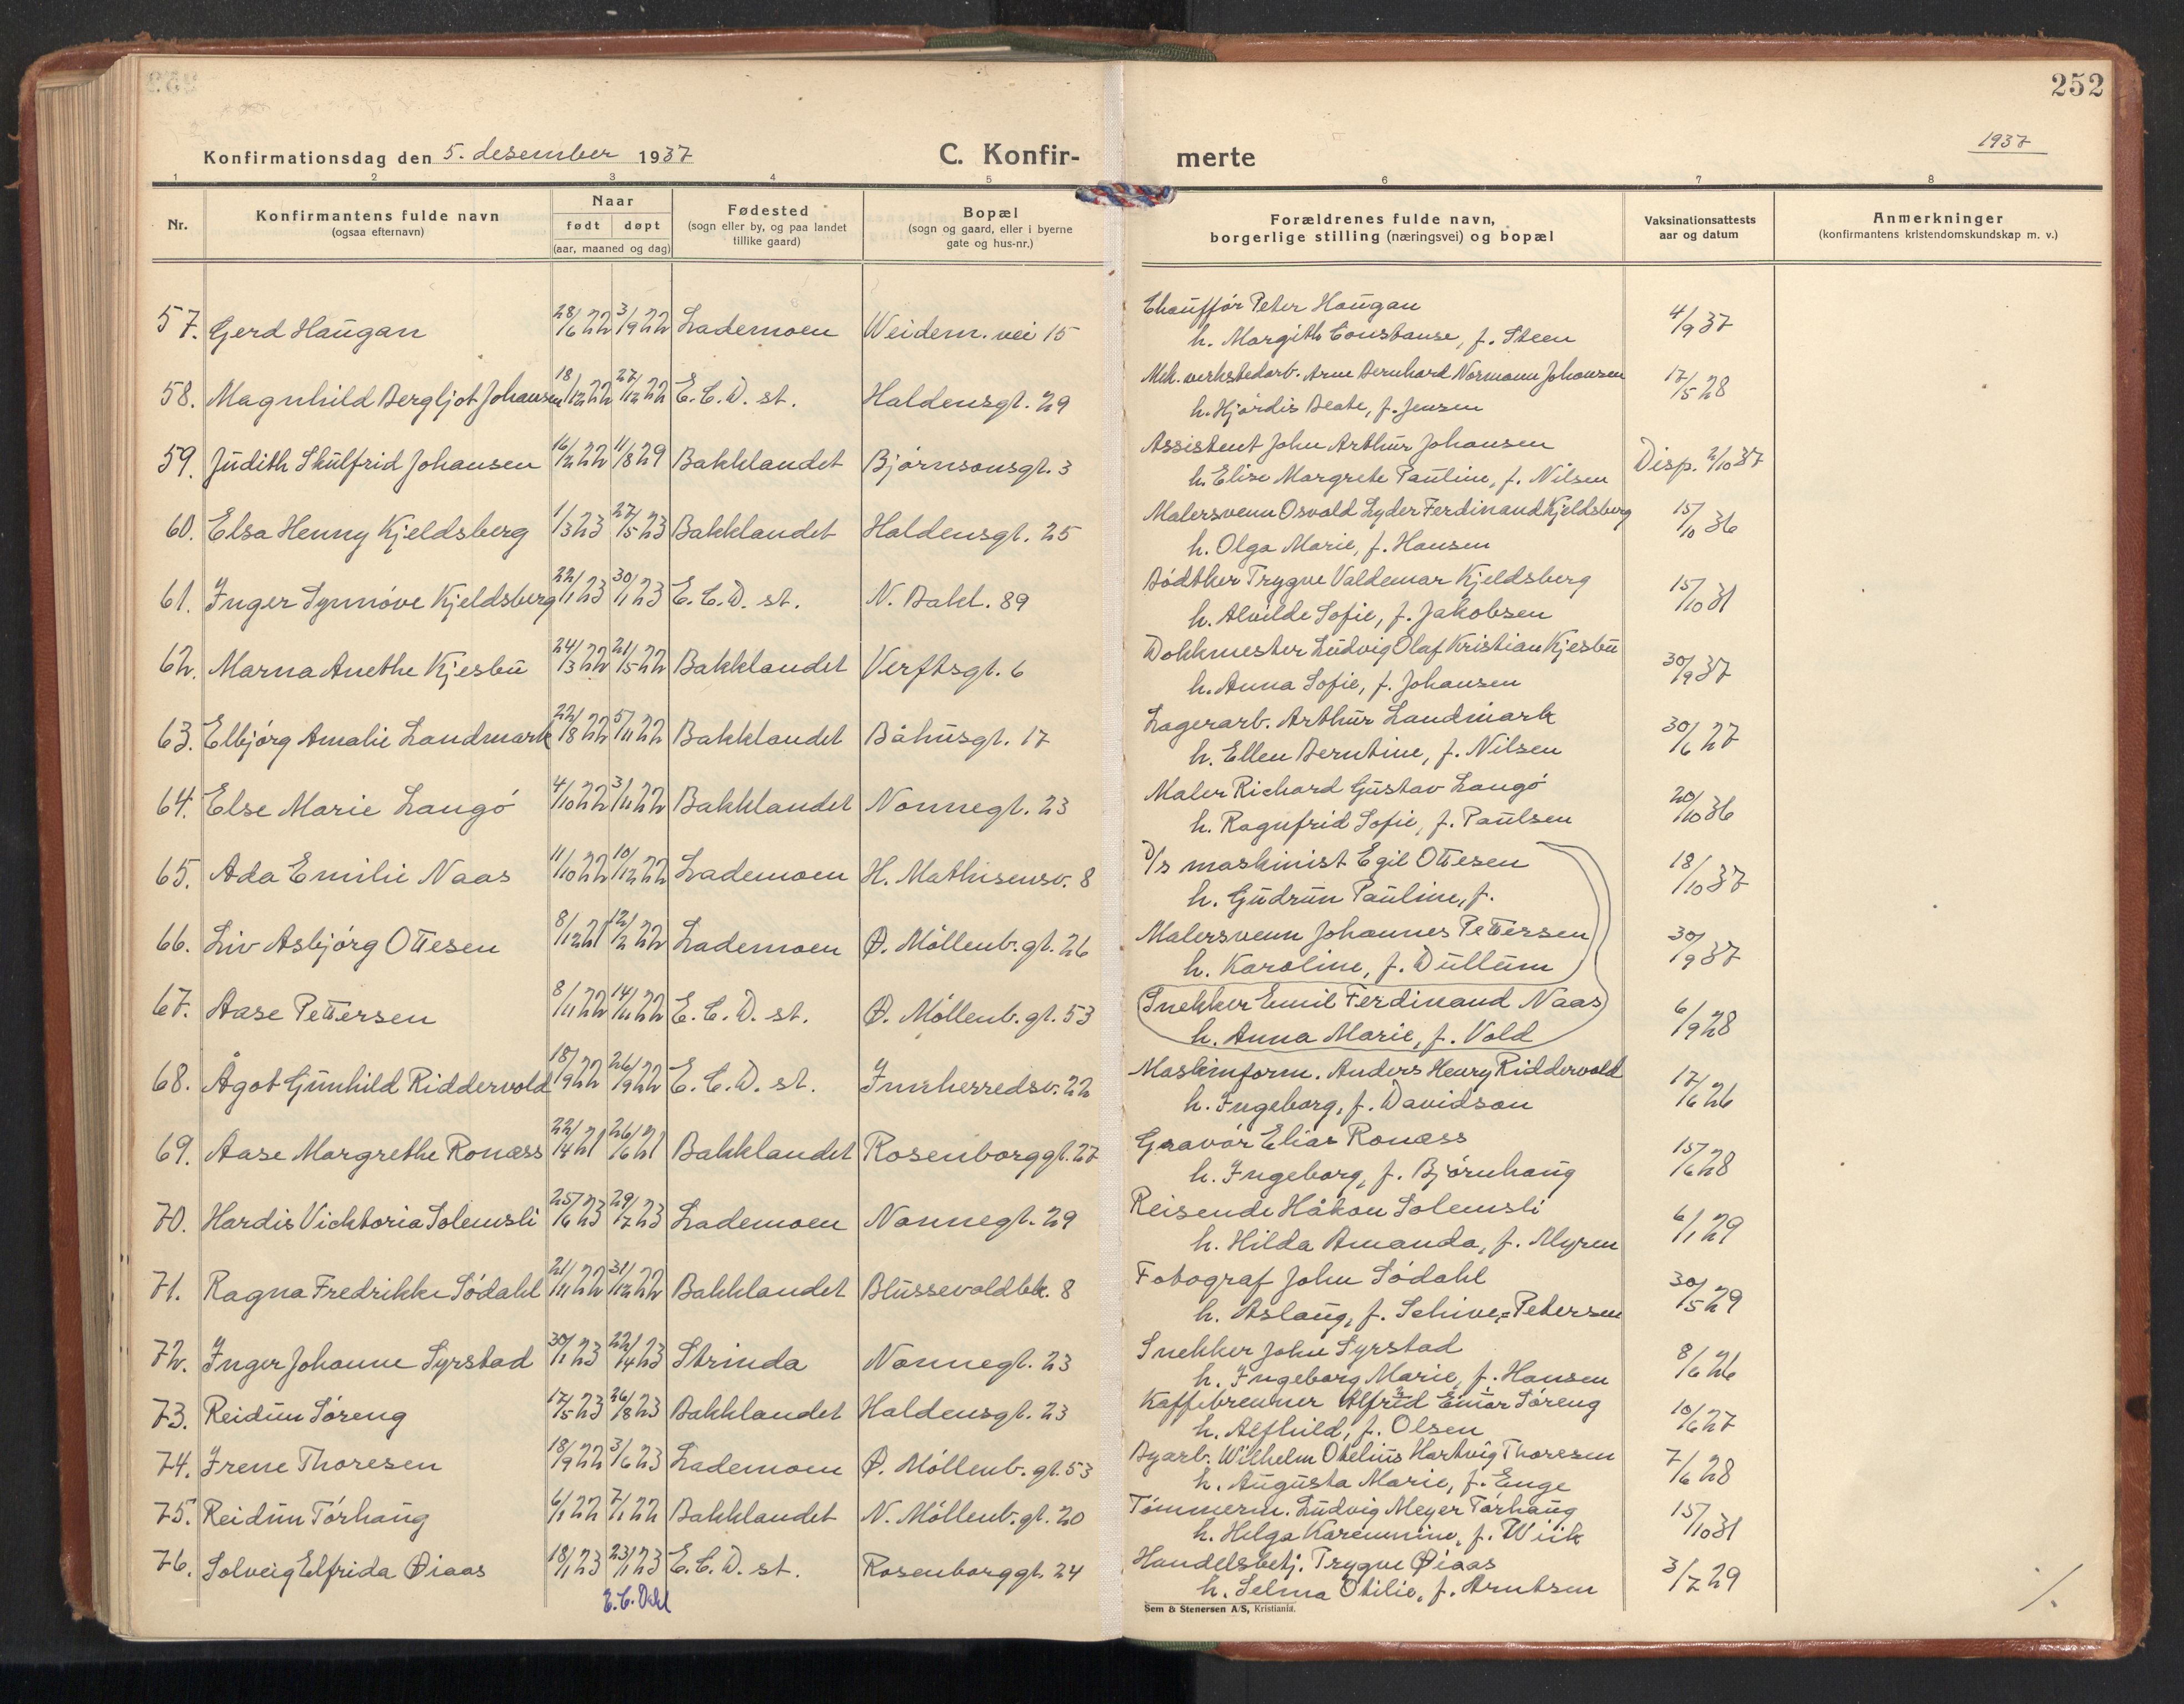 252
Konfirmationsdag den 5. desember 1937
C. Konfir-
merte
1937
1 2 3 4 5 6 7 8
Nr.
Konfirmantens fulde navn
(ogsaa efternavn)
Naar
født døpt
(aar, maaned og dag)
Fødested
(sogn eller by, og paa landet
tillike gaard)
Bopæl
(sogn og gaard, eller i byerne
gate og hus-nr.)
Forældrenes fulde navn,
borgerlige stilling (næringsvei) og bopæl
Vaksinationsattests
aar og datum
Anmerkninger
(konfirmantens kristendomskundskap m. v.)
57. Gerd Haugan 28/6 22 3/9 22 Lademoen Weidem. vei 15
Chauffør Peter Haugan
h. Margith Constanse, f. Steen
4/9 37
58. Magnhild Bergljot Johansen 18/12 22 27/12 22 E.C.D. st. Haldensgt. 29
Mek. verkstedarb. Arne Bernhard Normann Johansen
h. Hjørdis Beate, f. Jensen
17/5 28
59. Judith Skulfrid Johansen 16/12 22 11/8 29 Bakklandet Bjørnsonsgt. 3
Assistent John Arthur Johansen
h. Elise Margrete Pauline, f. Nilsen
Disp. 2/10 37
60. Elsa Henny Kjeldsberg 1/3 23 27/5 23 Bakklandet Haldensgt. 25
Malersvenn Osvald Lyder Ferdinand Kjeldsberg
h. Olga Marie, f. Hansen
15/10 36
61. Inger Synnøve Kjeldsberg 22/1 23 30/1 23 E.C.D. st. N. Bakl. 89
Bødtker Trygve Valdemar Kjeldsberg
h. Alvilde Sofie, f. Jakobsen
15/10 31
62. Marna Anethe Kjesbu 24/3 22 21/5 22 Bakklandet Verftsgt. 6
Dokkmester Ludvig Olaf Kristian Kjesbu
h. Anna Sofie, f. Johansen
30/9 37
63. Elbjørg Amalie Landmark 22/8 22 5/11 22 Bakklandet Båhusgt. 17
Lagerarb. Arthur Landmark
h. Ellen Berntine, f. Nilsen
30/6 27
64. Else Marie Langø 4/10 22 3/11 22 Bakklandet Nonnegt. 23
Maler Richard Gustav Langø
h. Ragnfrid Sofie, f. Paulsen
20/10 36
65. Ada Emilie Naas 11/10 22 10/12 22 Lademoen H. Mathisensv. 8
D/s maskinist Egil Ottesen
h. Gudrun Pauline, f.
18/10 37
66. Liv Asbjørg Ottesen 8/12 21 12/2 22 Lademoen Ø. Møllenb. gt. 26
Malersvenn Johannes Pettersen
h. Karoline, f. Dullum
30/9 37
67. Aase Pettersen 8/11 22 14/11 22 E.C.D. st. Ø. Møllenb. gt. 53
Snekker Emil Ferdinand Naas
h. Anna Marie, f. Vold
6/9 28
68. Ågot Gunhild Riddervold 18/9 22 26/9 22 E.C.D. st. Innherredsv. 22
Maskinform. Anders Henry Riddervold
h. Ingeborg, f. Davidson
17/6 26
69. Aase Margrethe Ronæss 22/4 21 26/6 21 Bakklandet Rosenborggt. 27
Gravør Elias Ronæss
h. Ingeborg, f. Bjørnhaug
15/6 28
70. Hardis Vicktoria Solemsli 25/6 23 29/7 23 Lademoen Nonnegt. 29
Reisende Håkon Solemsli
h. Hilda Amanda, f. Myren
6/1 29
71. Ragna Fredrikke Sødahl 21/11 22 31/12 22 Bakklandet Blussevoldbk. 8
Fotograf John Sødahl
h. Aslaug, f. Schive=Petersen
30/5 29
72. Inger Johanne Syrstad 30/1 23 22/4 23 Strinda Nonnegt. 23
Snekker John Syrstad
h. Ingeborg Marie, f. Hansen
8/6 26
73. Reidun Søreng 17/5 23 26/8 23 Bakklandet Haldensgt. 23
Kaffebrenner Alfred Einar Søreng
h. Alfhild, f. Olsen
10/6 27
74. Irene Thoresen 18/9 22 3/6 23 Lademoen Ø. Møllenb. gt. 53
Byarb. Wilhelm Otelius Hartvig Thoresen
h. Augusta Marie, f. Enge
7/6 28
75. Reidun Tørhaug 6/1 22 7/1 22 Bakklandet N. Møllenb. gt. 20
Tømmerm. Ludvig Meyer Tørhaug
h. Helga Karemine, f. Wiik
15/10 31
76. Solveig Elfrida Øiaas 18/1 23 23/1 23 E.C.D. st. Rosenborggt. 24
Handelsbetj. Trygve Øiaas
h. Selma Otilie, f. Arntsen
3/7 29
E.C. Dahl
Sem & Stenersen A/S, Kristiania.